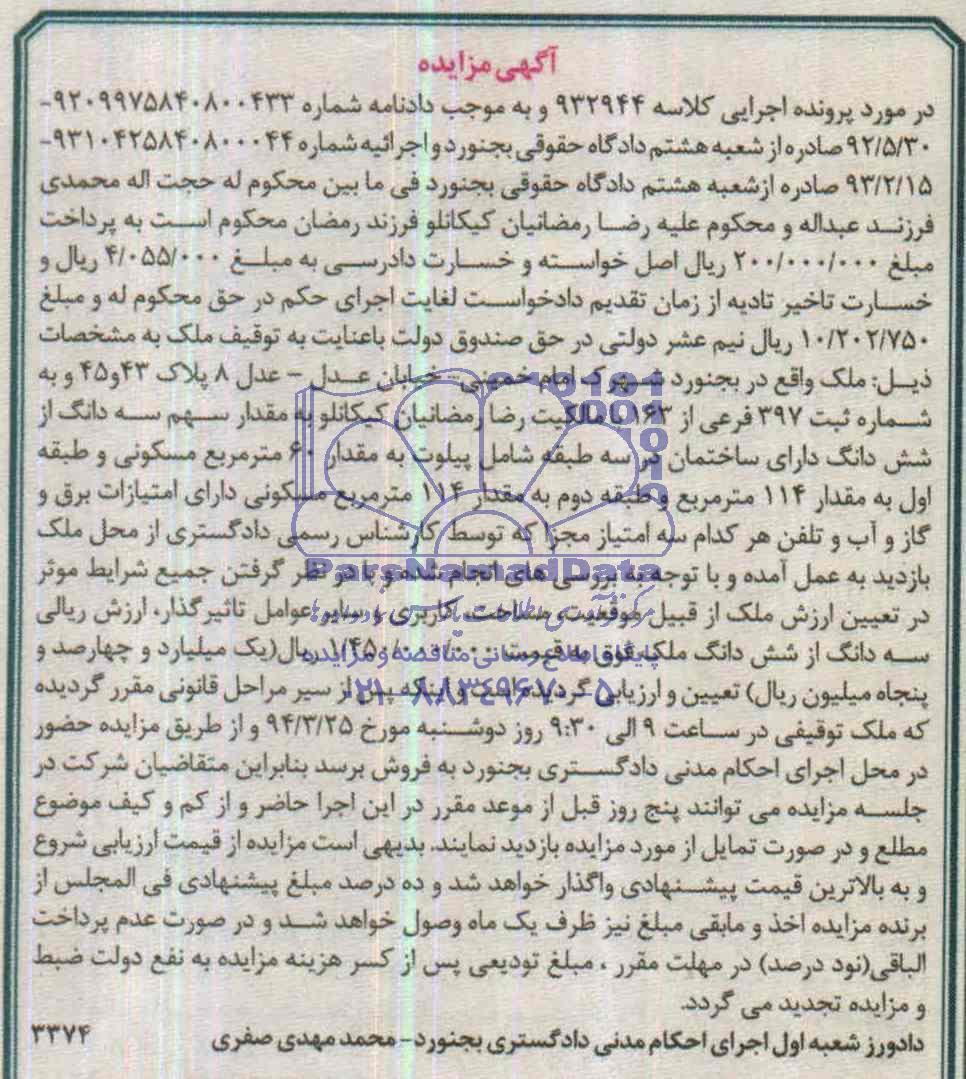 آگهی مزایده
در مورد پرونده اجرایی کلاسه ۹۳۲۹۴۴ و به موجب دادنامه شماره ۹۲۰۹۹۷۵۸۴۰۸۰۰۴۳۳-
۹۲/۵/۳۰ صادره از شعبه هشتم دادگاه حقوقی بجنورد و اجرائیه شماره ۹۳۱۰۴۲۵۸۴۰۸۰۰۰۴۴-
۹۳/۲/۱۵ صادره ازشعبه هشتم دادگاه حقوقی بجنورد فی ما بین محکوم له حجت اله محمدی
فرزند عبداله و محکوم علیه رضا رمضانیان کیکانلو فرزند رمضان محکوم است به پرداخت
مبلغ ۲۰۰/۰۰۰/۰۰۰ ریال اصل خواسته و خسارت دادرسی به مبلغ ۴/۰۵۵/۰۰۰ ریال و
خسارت تاخیر تادیه از زمان تقدیم دادخواست لغایت اجرای حکم در حق محکوم له و مبلغ
۱۰/۲۰۲/۷۵۰ ریال نیم عشر دولتی در حق صندوق دولت باعنایت به توقیف ملک به مشخصات
ذیل: ملک واقع در بجنورد شهرک امام خمینی- خیابان عدل - عدل ۸ پلاک ۴۳و۴۵ و به
شماره ثبت ۳۹۷ فرعی از ۱۶۳ با مالکیت رضا رمضانیان کیکانلو به مقدار سهم سه دانگ از
شش دانگ دارای ساختمان در سه طبقه شامل پیلوت به مقدار ۶۰ مترمربع مسکونی و طبقه
اول به مقدار ۱۱۴ مترمربع و طبقه دوم به مقدار ۱۱۴ مترمربع مسکونی دارای امتیازات برق و
گاز و آب و تلفن هر کدام سه امتیاز مجزا که توسط کارشناس رسمی دادگستری از محل ملک
بازدید به عمل آمده و با توجه به بررسی های انجام شده و با در نظر گرفتن جمیع شرایط موثر
ParsNamadData
در تعیین ارزش ملک از قبیل موقعیت، مساحت، کاربری و سایر عوامل تاثیرگذار، ارزش ریالی
سه دانگ از شش دانگ ملک فوق به قیمت ۱/۴۵۰/۰۰۰/۰۰۰ ریال(یک میلیارد و چهارصد و
پایگاه اطلاع رسانی مناقصه و مزایده
پنجاه میلیون ریال) تعیین و ارزیابی گردیده است و اینکه پس از سیر مراحل قانونی مقرر گردیده
۰۲۱-۸۸۳۴۹۶۷۰-۵
که ملک توقیفی در ساعت ۹ الی ۹:۳۰ روز دوشنبه مورخ ۹۴/۳/۲۵ و از طریق مزایده حضور
در محل اجرای احکام مدنی دادگستری بجنورد به فروش برسد بنابراین متقاضیان شرکت در
جلسه مزایده می توانند پنج روز قبل از موعد مقرر در این اجرا حاضر و از کم و کیف موضوع
مطلع و در صورت تمایل از مورد مزایده بازدید نمایند. بدیهی است مزایده از قیمت ارزیابی شروع
و به بالاترین قیمت پیشنهادی واگذار خواهد شد و ده درصد مبلغ پیشنهادی فی المجلس از
برنده مزایده اخذ و مابقی مبلغ نیز ظرف یک ماه وصول خواهد شد و در صورت عدم پرداخت
الباقی(نود درصد) در مهلت مقرر ، مبلغ تودیعی پس از کسر هزینه مزایده به نفع دولت ضبط
و مزایده تجدید می گردد.
دادورز شعبه اول اجرای احکام مدنی دادگستری بجنورد- محمد مهدی صفری ۳۳۷۴